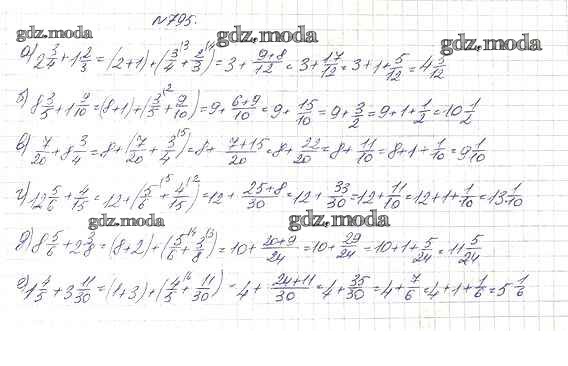 №795.
gdz.moda gdz.moda gdz.moda
а) 2 3/4 + 1 2/3 = (2+1) + (3/4 + 2/3) = 3 + 9+8/12 = 3 + 17/12 = 3 + 1 + 5/12 = 4 5/12
б) 8 3/5 + 1 9/10 = (8+1) + (3/5 + 9/10) = 9 + 6+9/10 = 9 + 15/10 = 9 + 3/2 = 9 + 1 + 1/2 = 10 1/2
в) 7/20 + 8 3/4 = 8 + (7/20 + 3/4) = 8 + 7+15/20 = 8 + 22/20 = 8 + 11/10 = 8 + 1 + 1/10 = 9 1/10
г) 12 5/6 + 4/15 = 12 + (5/6 + 4/15) = 12 + 25+8/30 = 12 + 33/30 = 12 + 11/10 = 12 + 1 + 1/10 = 13 1/10
gdz.moda gdz.moda
д) 8 5/6 + 2 3/8 = (8+2) + (5/6 + 3/8) = 10 + 20+9/24 = 10 + 29/24 = 10 + 1 + 5/24 = 11 5/24
е) 1 4/5 + 3 11/30 = (1+3) + (4/5 + 11/30) = 4 + 24+11/30 = 4 + 35/30 = 4 + 7/6 = 4 + 1 + 1/6 = 5 1/6